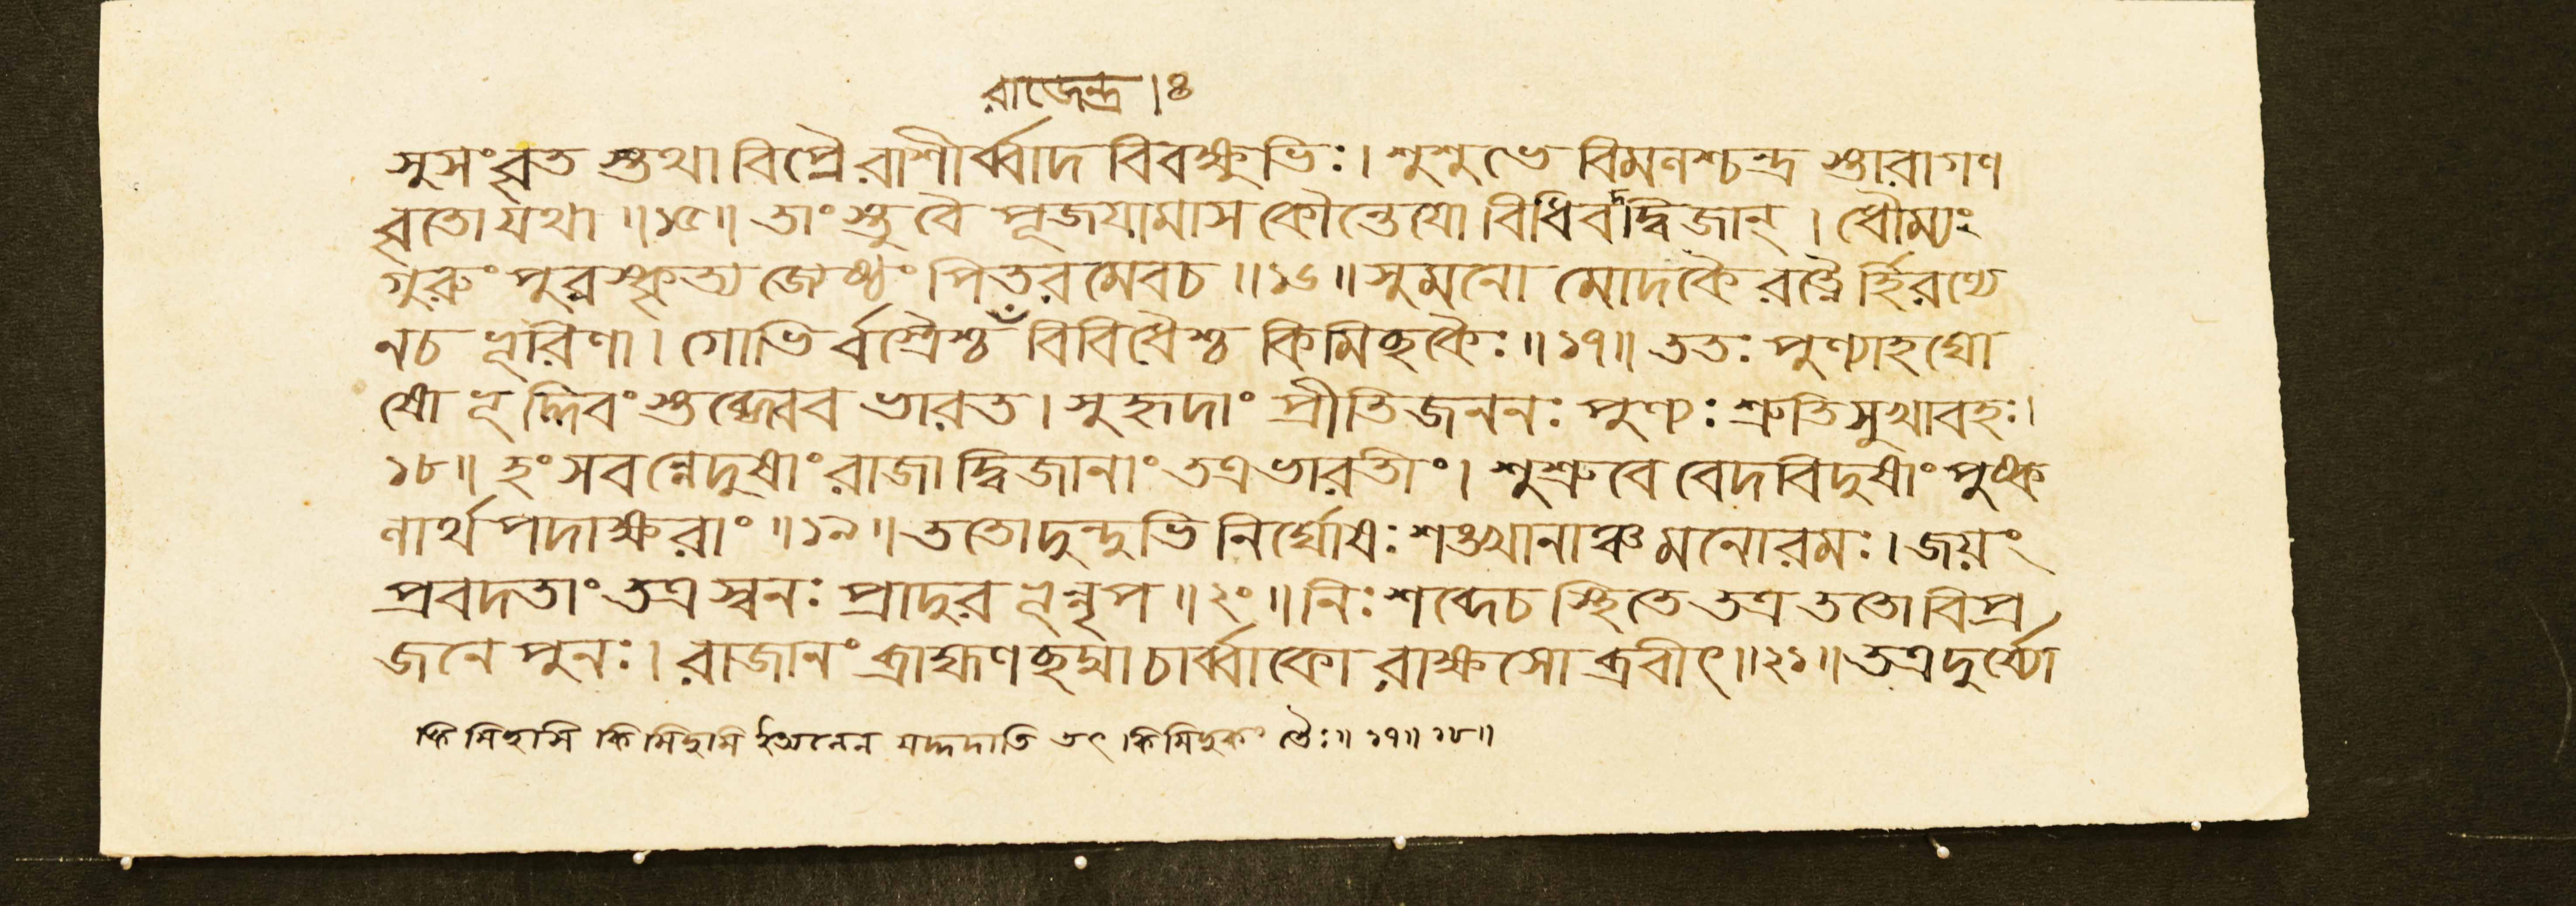 রাজেন্দ্র ।৪
সুসংবৃত স্তথা বিপ্রৈরাশীর্ব্বাদ বিবক্ষুভিঃ। শুশুভে বিমলশ্চন্দ্র স্তারাগণ
বৃতোযথা ॥১৫॥ তাংস্তু বৈ পূজয়ামাস কৌন্তেয়ো বিধিবদ্দ্বিজান্ । ধৌম্যং
গুরুং পুরস্কৃত্য জ্যেষ্ঠং পিতরমেবচ ॥১৬॥ সুমনো মোদকৈ রত্নৈর্হিরণ্যে
নচ ভূরিণা। গোভির্বস্ত্রৈশ্চ বিবিধৈশ্চ কিমিচ্ছকৈঃ ॥১৭॥ ততঃ পুণ্যাহঘো
ষো ভূদ্দিবং স্তব্ধ্বেব ভারত। সুহৃদাং প্রীতিজননঃ পুণ্যঃ শ্রুতিসুখাবহঃ।
১৮॥ হংসবন্নেদুষাং রাজা দ্বিজানাং তত্রভারতীং। শুশ্রুবে বেদবিদুষাং পুষ্ক
লার্থপদাক্ষরাং ॥১৯॥ ততোদুন্দুভিনির্ঘোষঃ শঙ্খানাঞ্চমনোরমঃ। জয়ং
প্রবদতাং তত্র স্বনঃ প্রাদুরভূন্নৃপ ॥২০॥ নিঃশব্দেচ স্থিতে তত্র ততো বিপ্র
জনে পুনঃ। রাজানং ব্রাহ্মণছদ্মা চার্ব্বাকো রাক্ষসোব্রবীৎ॥২১॥ তত্রদুর্য্যো
কিমিচ্ছসি কিমিচ্ছসি যদ্দদাতি তৎ কিমিচ্ছকং তৈঃ॥ ১৭॥ ১৮॥